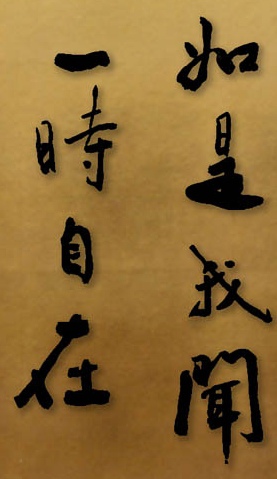 如是我聞
一時自在